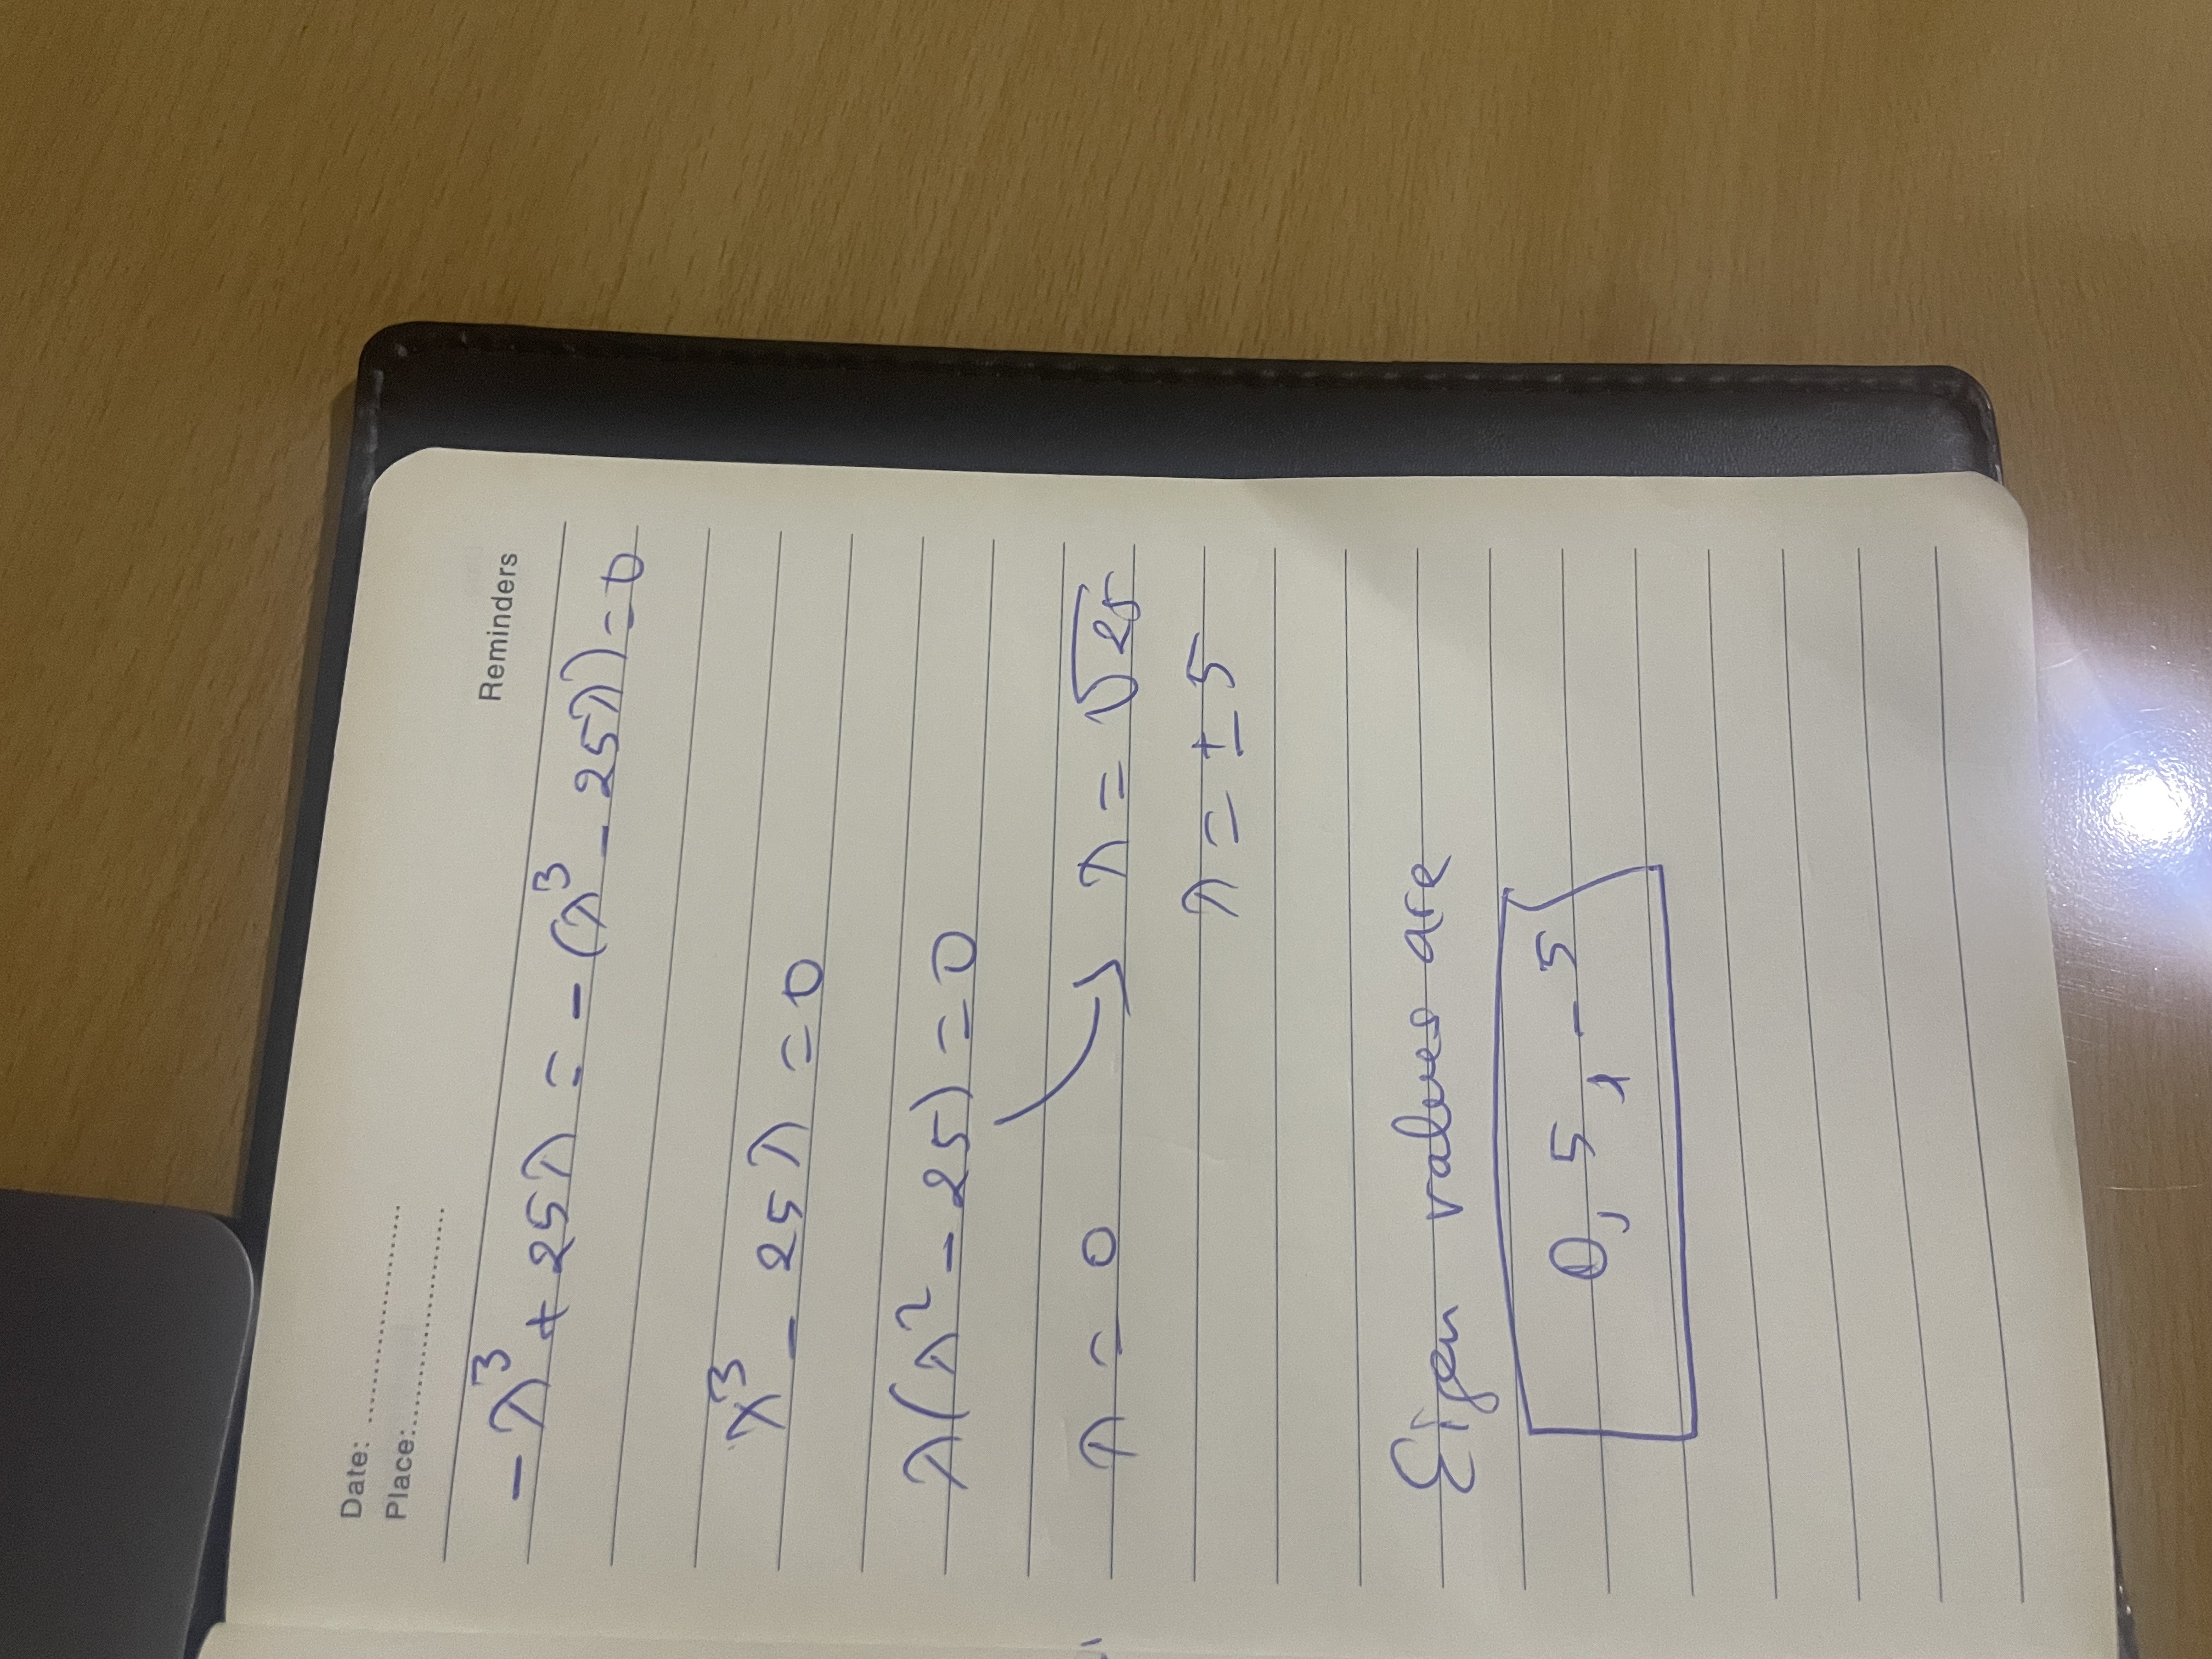 Date: ........................
Place:.........................
Reminders
-λ³ + 25λ = -(λ³ - 25λ) = 0
λ³ - 25λ = 0
λ(λ² - 25) = 0
λ = 0 → λ = √25
λ = ± 5
Eigen values are
0, 5, -5